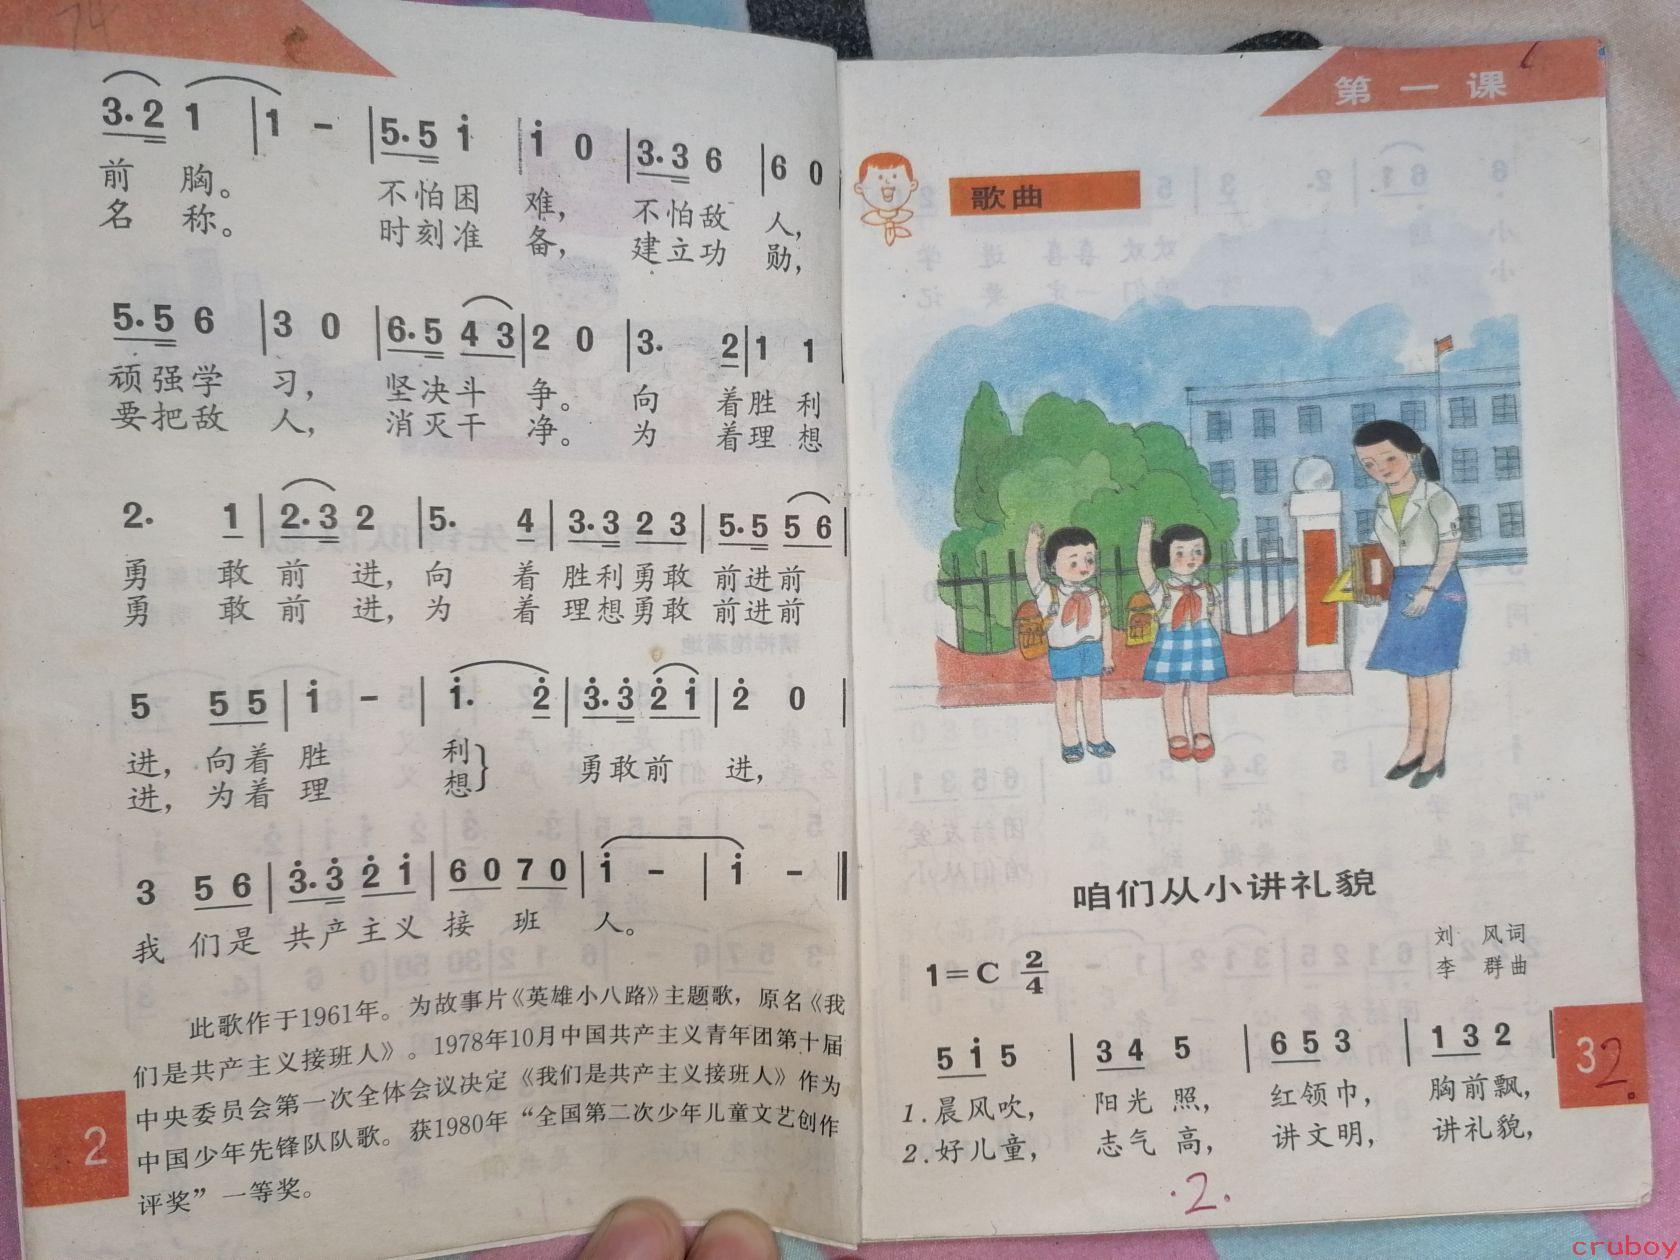 74
3.2 1 | 1 - | 5.5 i | i 0 | 3.3 6 | 6 0
前 胸。 不怕困 难， 不怕敌 人，
名 称。 时刻准 备， 建立功 勋，
5.5 6 | 3 0 | 6.5 4 3 | 2 0 | 3. 2 | 1 1
顽强学 习， 坚决斗 争。 向 着胜 利
要把敌 人， 消灭干 净。 为 着理 想
2. 1 | 2.3 2 | 5. 4 | 3.3 2 3 | 5.5 5 6 |
勇 敢 前 进，向 着 胜利勇敢 前进前
勇 敢 前 进，为 着 理想勇敢 前进前
5 5 5 | i - | i. 2̇ | 3̇.3̇ 2̇ i | 2̇ 0 |
进，向着 胜 利} 勇敢前 进，
进，为着 理 想}
3 5 6 | 3̇.3̇ 2̇ i | 6 0 7 0 | i - | i - ‖
我 们是 共产主义 接 班 人。
此歌作于1961年。为故事片《英雄小八路》主题歌，原名《我
们是共产主义接班人》。1978年10月中国共产主义青年团第十届
中央委员会第一次全体会议决定《我们是共产主义接班人》作为
中国少年先锋队队歌。获1980年“全国第二次少年儿童文艺创作
评奖”一等奖。
2
第一课
歌曲
咱们从小讲礼貌
刘 风词
李 群曲
1=C 2/4
5 i 5 | 3 4 5 | 6 5 3 | 1 3 2 |
1.晨风吹， 阳光 照， 红领巾， 胸前飘，
2.好儿童， 志气 高， 讲文明， 讲礼貌，
3
2.
.2.
cruboy